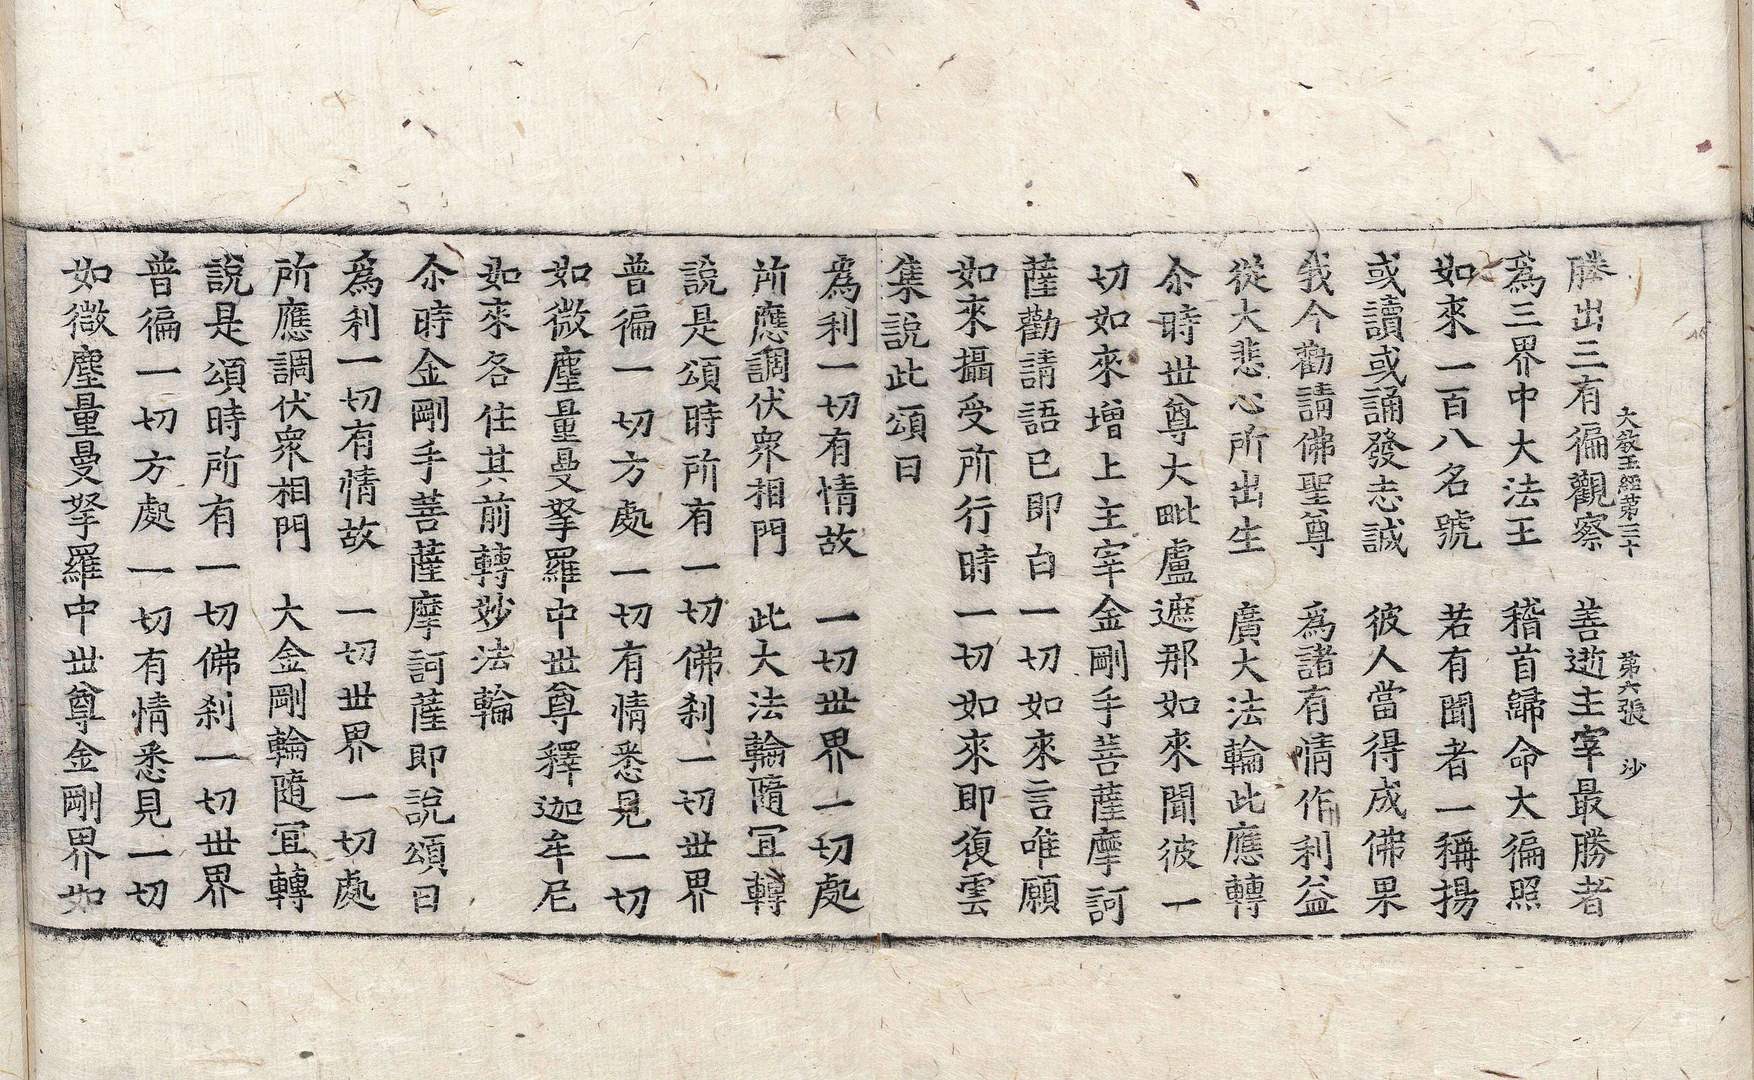 大敎王經第三十　第六張　沙
勝出三有徧觀察　善逝主宰最勝者
爲三界中大法王　稽首歸命大徧照
如來一百八名號　若有聞者一稱揚
或讀或誦發志誠　彼人當得成佛果
我今勸請佛聖尊　爲諸有情作利益
從大悲心所出生　廣大法輪此應轉
尒時世尊大毗盧遮那如來聞彼一
切如來增上主宰金剛手菩薩摩訶
薩勸請語已卽白一切如來言唯願
如來攝受所行時一切如來卽復雲
集說此頌曰
爲利一切有情故　一切世界一切處
所應調伏衆相門　此大法輪隨冝轉
說是頌時所有一切佛刹一切世界
普徧一切方處一切有情悉見一切
如微塵量曼拏羅中世尊釋迦牟尼
如來各住其前轉妙法輪
尒時金剛手菩薩摩訶薩卽說頌曰
爲利一切有情故　一切世界一切處
所應調伏衆相門　大金剛輪隨冝轉
說是頌時所有一切佛刹一切世界
普徧一切方處一切有情悉見一切
如微塵量曼拏羅中世尊金剛界如